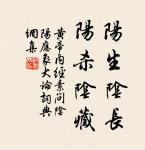 陽生陰長
陽杀陰藏
黃帝內經素問陰
陽應象大論詞典
網集